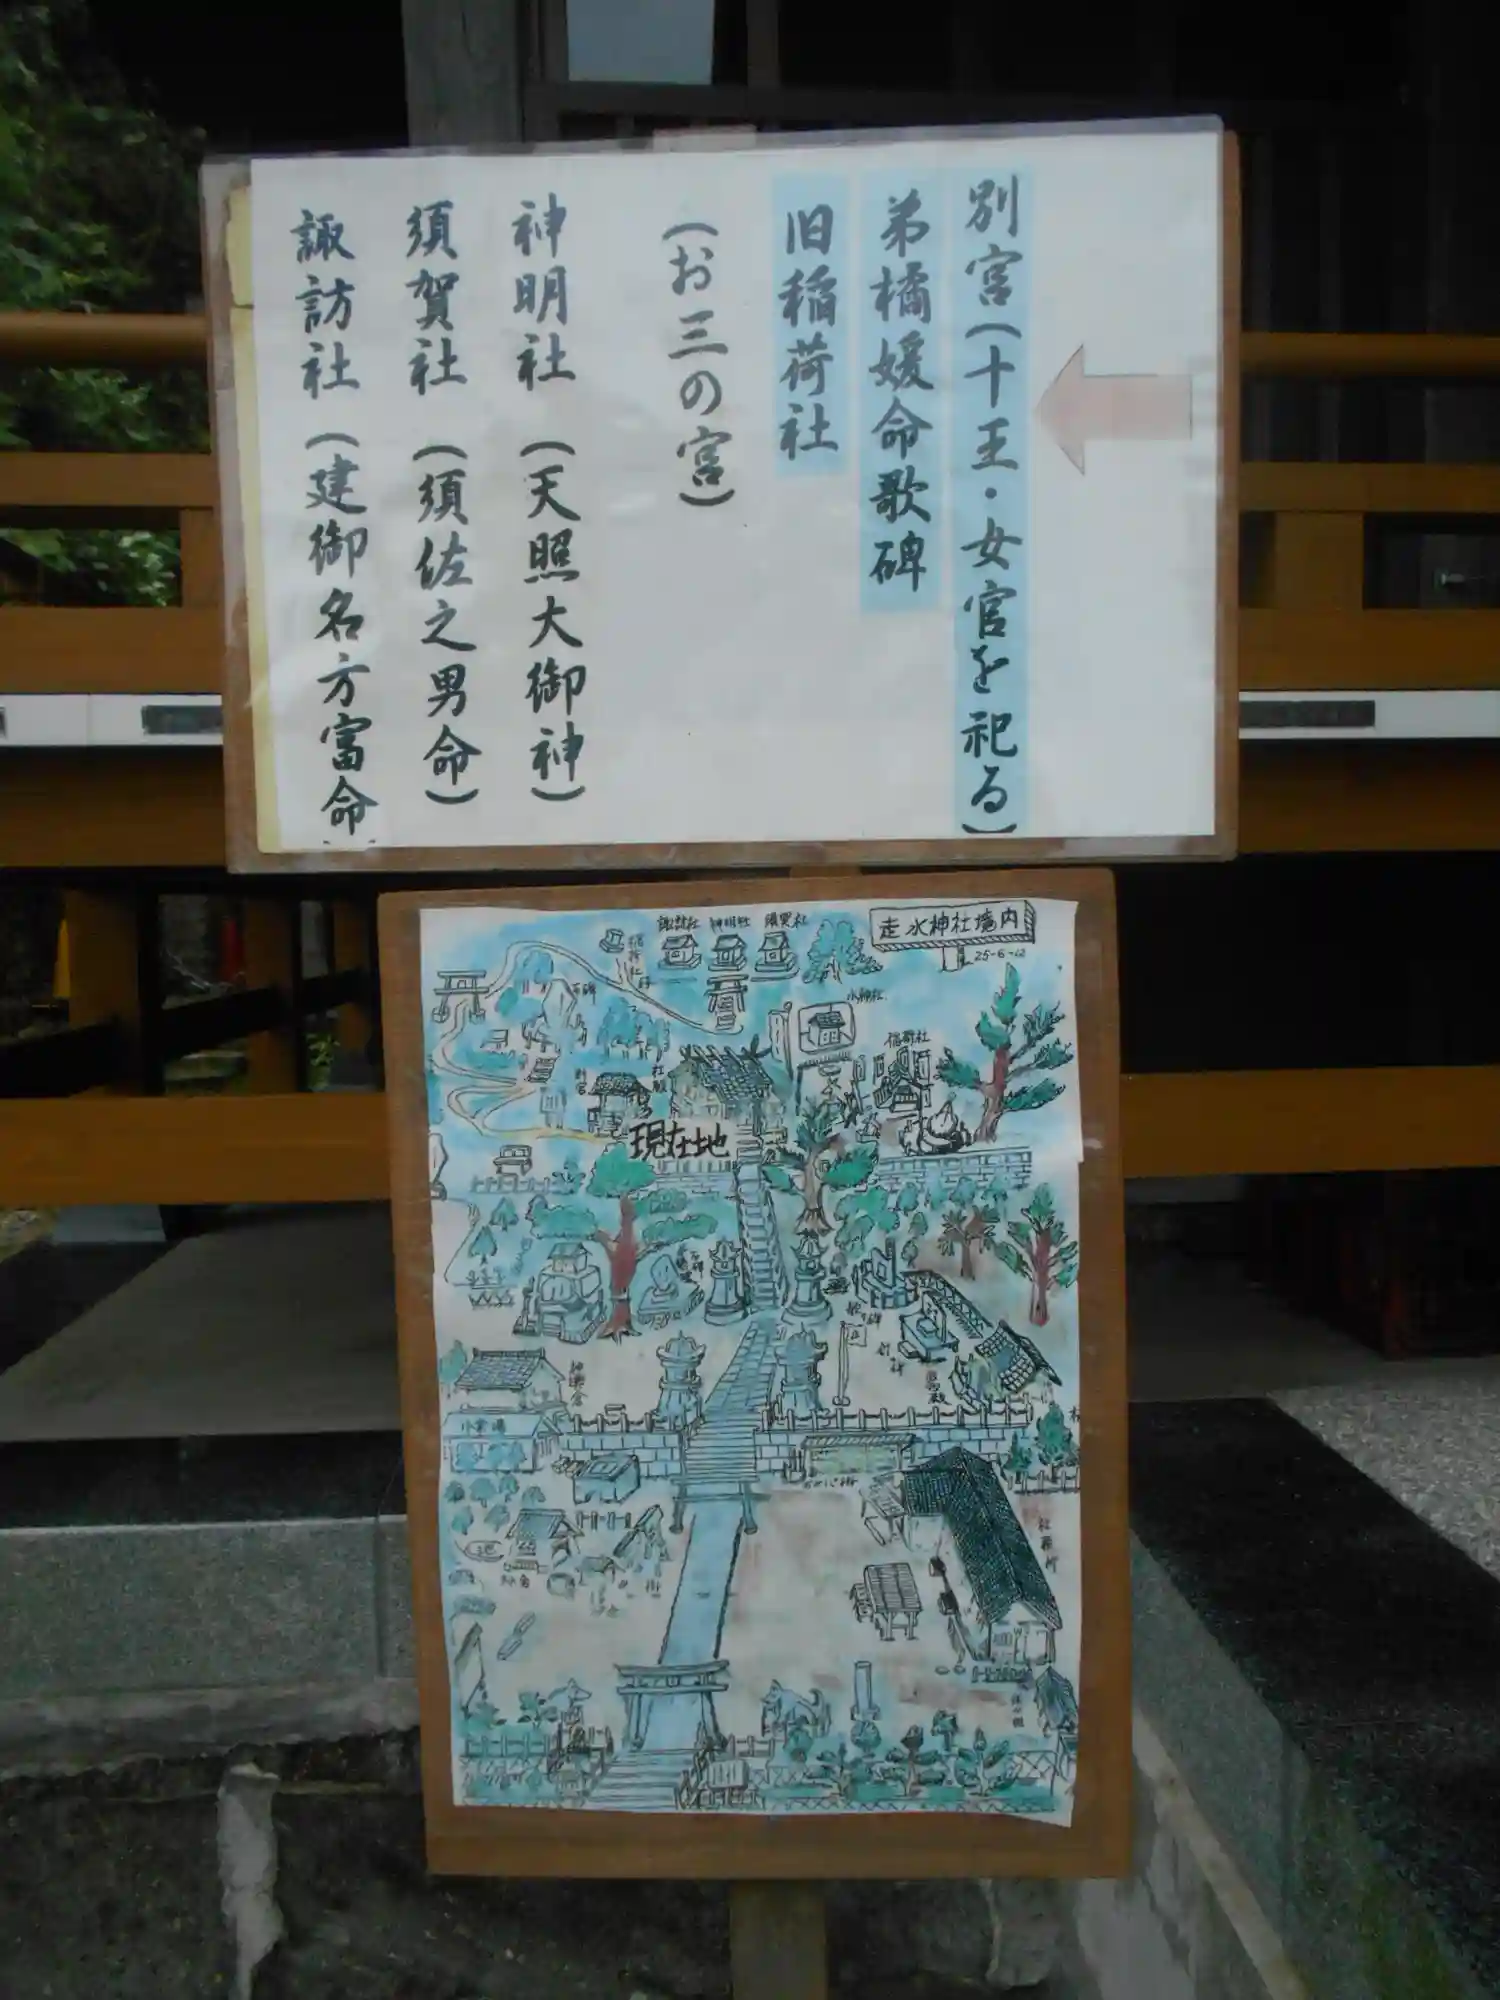 別宮(十王・女官を祀る)
弟橘媛命歌碑
旧稲荷社
(お三の宮)
神明社 (天照大御神)
須賀社 (須佐之男命)
諏訪社 (建御名方富命)
走水神社境内
25-6-12
諏訪社
神明社
須賀社
水神社
稲荷社
別宮
社殿
現在地
歌碑
針碑
神楽舎
社務所